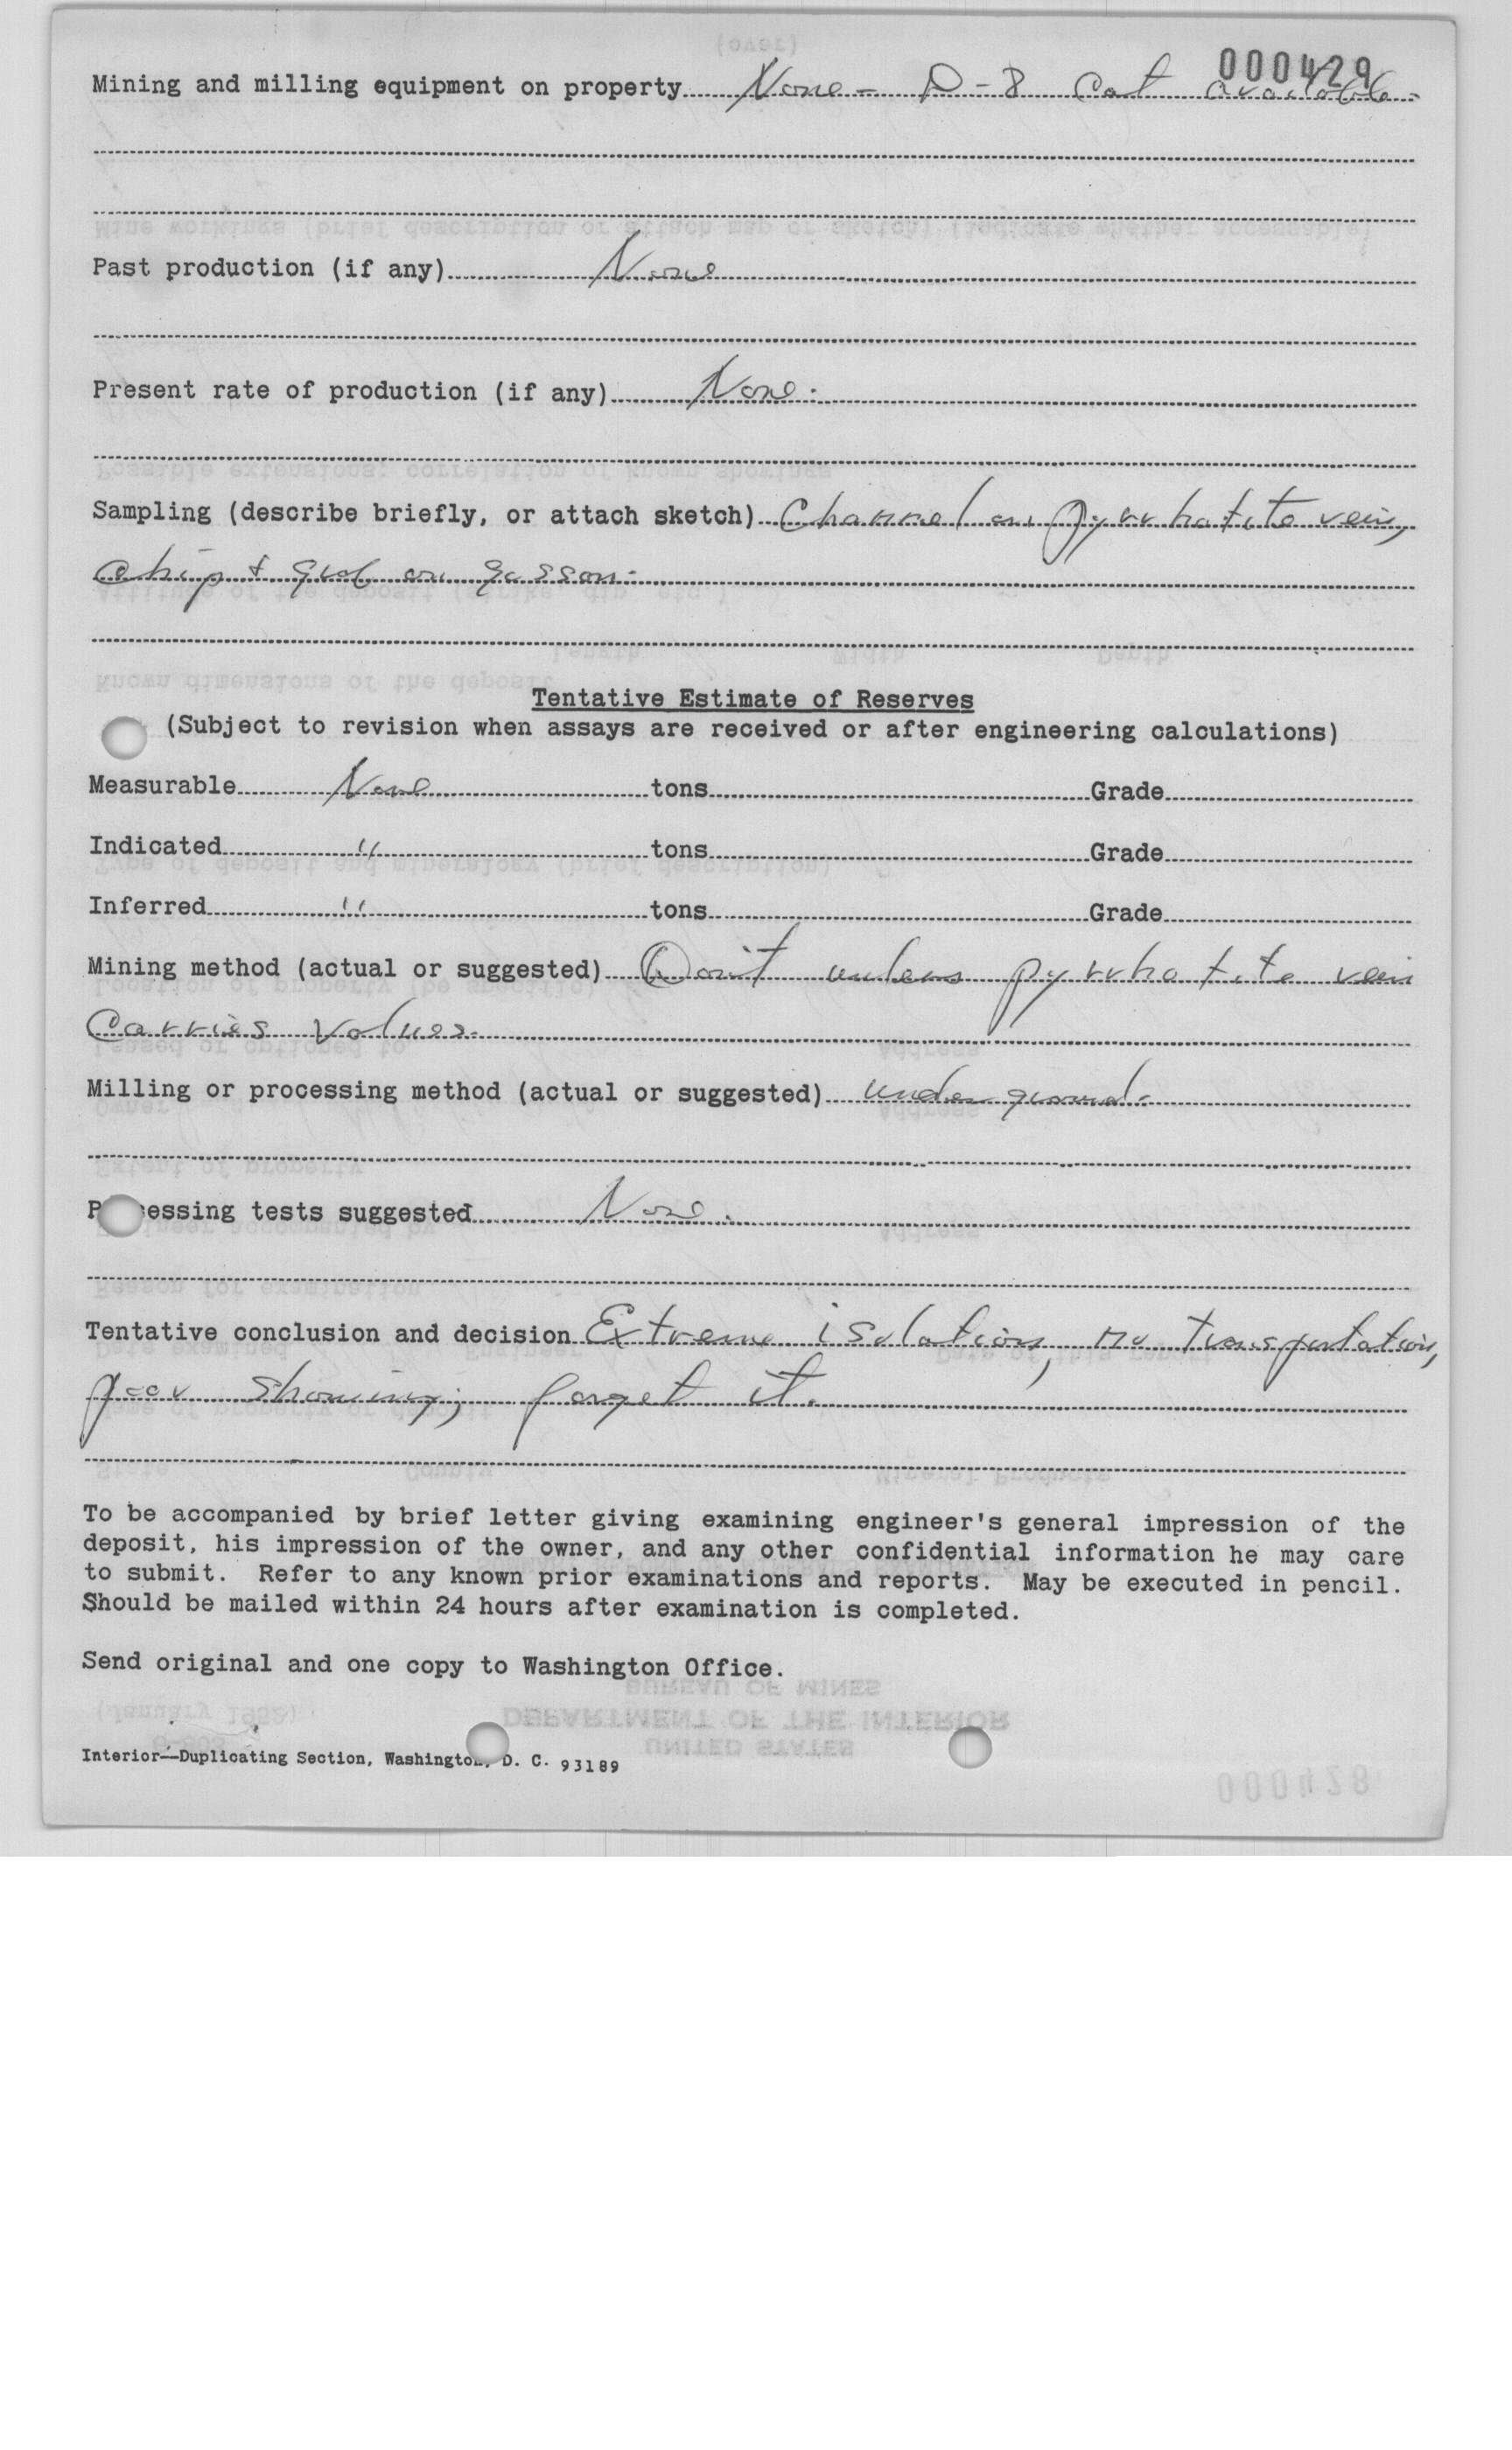 000429
Mining and milling equipment on property None - D-8 Cat available.
Past production (if any) None
Present rate of production (if any) None.
Sampling (describe briefly, or attach sketch) Channel on pyrrhotite vein,
chip & grab on gossan.
Tentative Estimate of Reserves
(Subject to revision when assays are received or after engineering calculations)
Measurable None tons Grade
Indicated " tons Grade
Inferred " tons Grade
Mining method (actual or suggested) Don't unless pyrrhotite vein
Carries Values.
Milling or processing method (actual or suggested) underground.
P essing tests suggested None.
Tentative conclusion and decision Extreme isolation, no transportation,
poor showing; forget it.
To be accompanied by brief letter giving examining engineer's general impression of the
deposit, his impression of the owner, and any other confidential information he may care
to submit. Refer to any known prior examinations and reports. May be executed in pencil.
Should be mailed within 24 hours after examination is completed.
Send original and one copy to Washington Office.
Interior—Duplicating Section, Washington, D. C. 93189